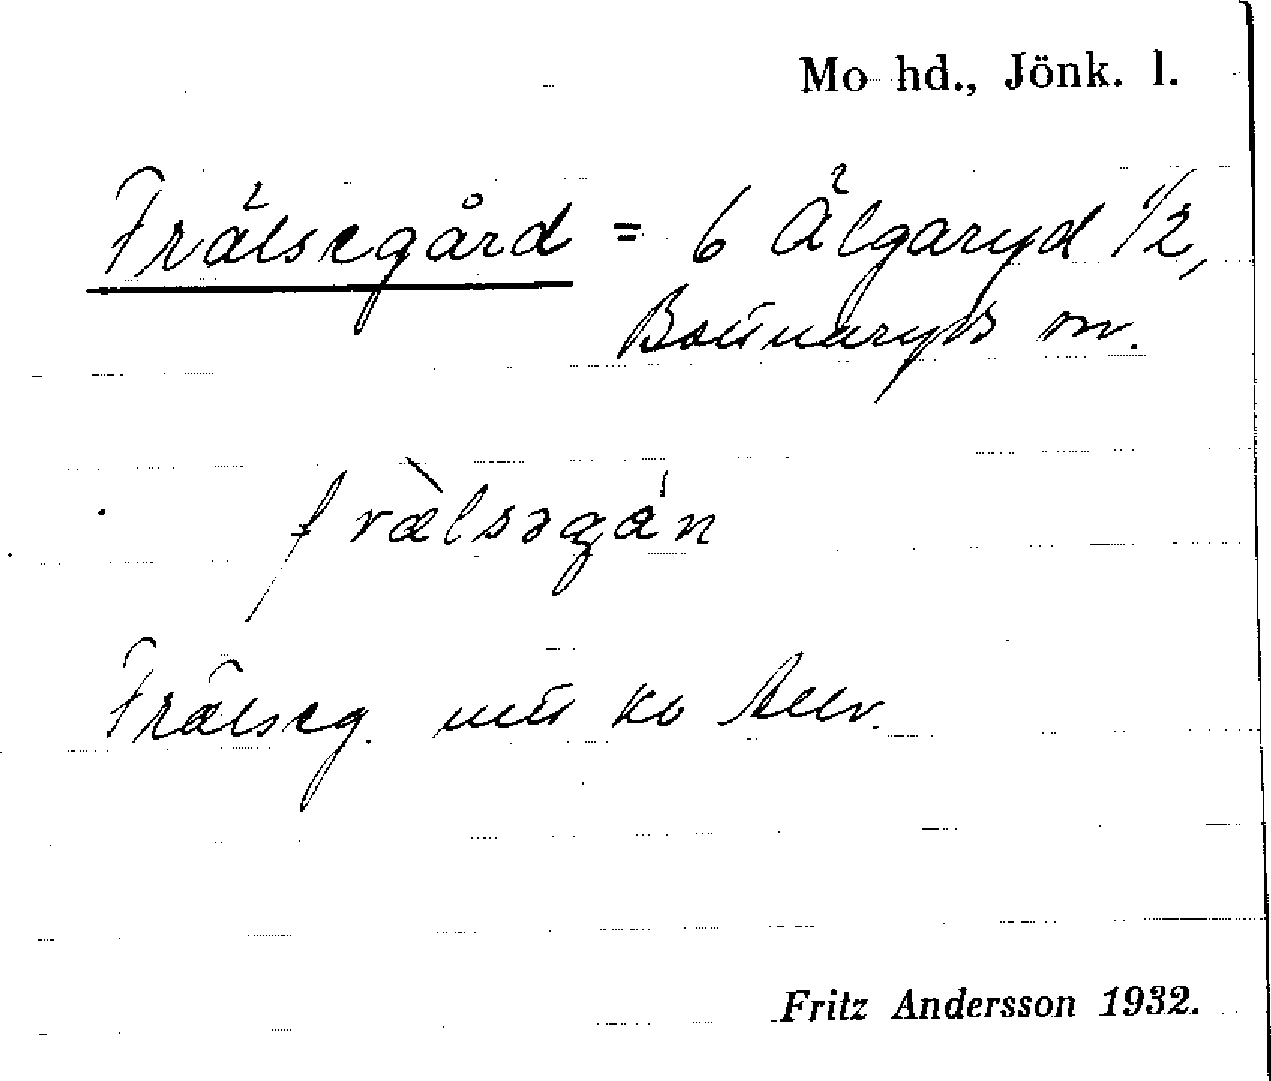 Mo hd., Jönk. l.
Frälsegård = 6 Älgaryd 1/2,
Bottnaryds
fràlsəgán
Frälseg.
Fritz Andersson 1932.